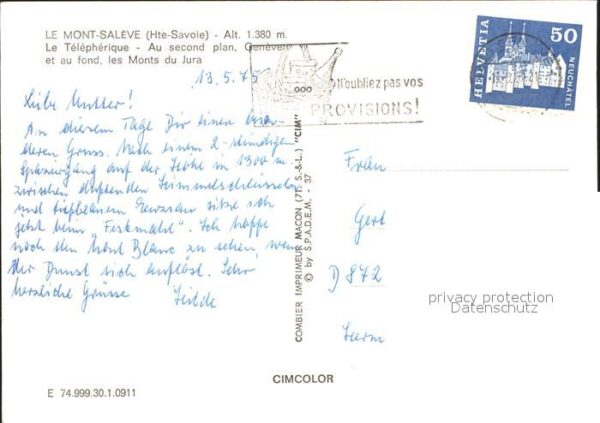 LE MONT-SALÈVE (Hte-Savoie) - Alt. 1.380 m.
Le Téléphérique - Au second plan, Genève
et au fond, les Monts du Jura
13.5.75
N'oubliez pas vos
PROVISIONS!
HELVETIA
50
NEUCHÂTEL
Liebe Mutter!
An diesem Tage Dir einen beson
deren Gruss. Nach einem 2-stündigen
Spaziergang auf der Höhe in 1300 m.
zwischen duftenden Himmelschlüsseln
und tiefblauem Enzian sitze ich
jetzt beim "Festmahl". Ich hoffe
noch den Mont Blanc zu sehen, wenn
der Dunst sich auflöst. Sehr
herzliche Grüsse
COMBIER IMPRIMEUR MACON (71. S.-&-L.) "CIM"
© by S.P.A.D.E.M. - 37
Frau
D 872
privacy protection
Datenschutz
CIMCOLOR
E 74.999.30.1.0911